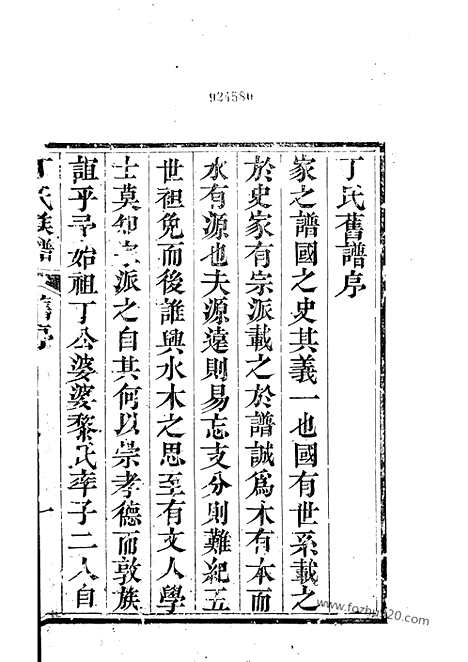 924580
丁氏舊譜序
家之譜國之史其義一也國有世系載之
於史家有宗派載之於譜誠爲木有本而
水有源也夫源遠則易忘支分則難紀五
世祖免而後誰興水木之思至有文人學
士莫知宗派之自其何以崇孝德而敦族
誼乎予始祖丁公婆婆黎氏率子二人自
丁氏族譜 舊序 一
www.fozhu920.com